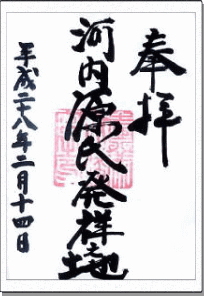 奉拝
河内源氏発祥之地
平成二十八年二月十四日